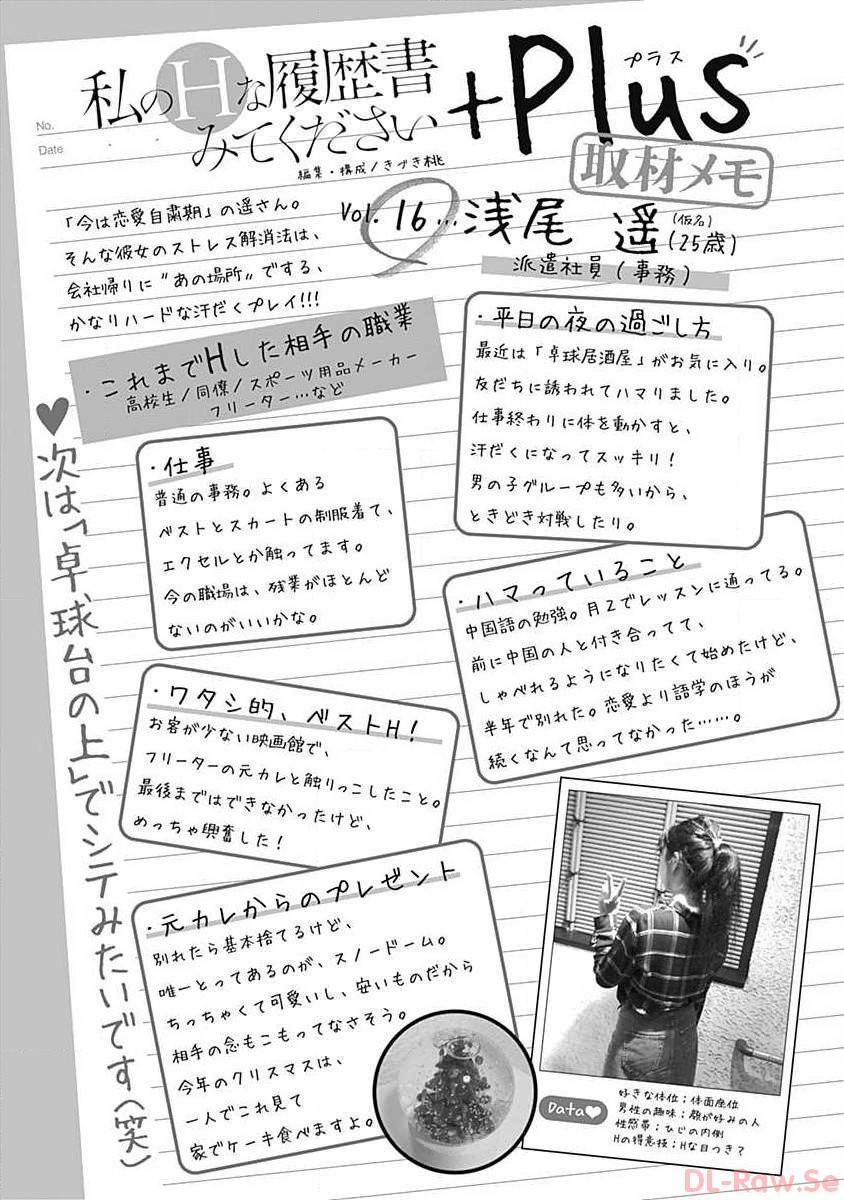 No.
Date
私のHな履歴書
みてください
+Plus
プラス
編集・構成/きづき桃
取材メモ
「今は恋愛自粛期」の遥さん。
そんな彼女のストレス解消法は、
会社帰りに"あの場所"でする、
かなりハードな汗だくプレイ!!!
Vol. 16…浅尾 遥(仮名)(25歳)
派遣社員(事務)
・これまでHした相手の職業
高校生/同僚/スポーツ用品メーカー
フリーター…など
・平日の夜の過ごし方
最近は「卓球居酒屋」がお気に入り。
友だちに誘われてハマりました。
仕事終わりに体を動かすと、
汗だくになってスッキリ!
男の子グループも多いから、
ときどき対戦したり。
・仕事
普通の事務。よくある
ベストとスカートの制服着て、
エクセルとか触ってます。
今の職場は、残業がほとんど
ないのがいいかな。
・ハマっていること
中国語の勉強。月2でレッスンに通ってる。
前に中国の人と付き合ってて、
しゃべれるようになりたくて始めたけど、
半年で別れた。恋愛より語学のほうが
続くなんて思ってなかった……。
・ワタシ的、ベストH!
お客が少ない映画館で、
フリーターの元カレと触りっこしたこと。
最後まではできなかったけど、
めっちゃ興奮した!
・元カレからのプレゼント
別れたら基本捨てるけど、
唯一とってあるのが、スノードーム。
ちっちゃくて可愛いし、安いものだから
相手の念もこもってなさそう。
今年のクリスマスは、
一人でこれ見て
家でケーキ食べますよ。
♥次は「卓球台の上」でシテみたいです(笑)
Data♥
好きな体位;体面座位
男性の趣味;顔が好みの人
性感帯;ひじの内側
Hの得意技;Hな目つき?
DL-Raw.Se